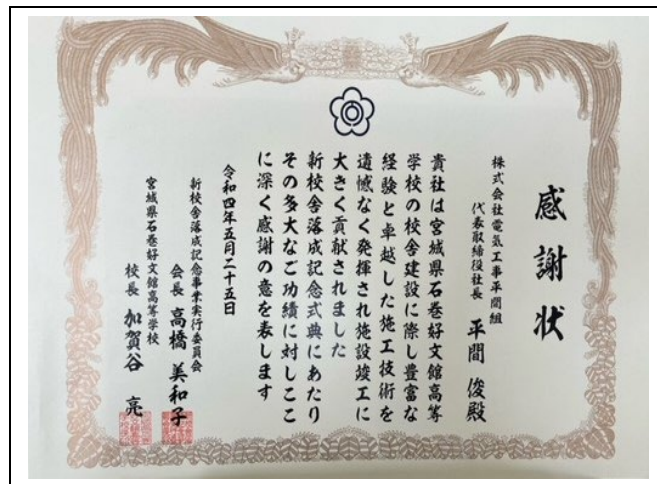 感謝状
株式会社電気工事平間組
代表取締役社長 平間俊殿
貴社は宮城県石巻好文館高等
学校の校舎建設に際し豊富な
経験と卓越した施工技術を
遺憾なく発揮され施設竣工に
大きく貢献されました
新校舎落成記念式典にあたり
その多大なご功績に対しここ
に深く感謝の意を表します
令和四年五月二十五日
新校舎落成記念事業実行委員会
会長 高橋美和子
宮城県石巻好文館高等学校
校長 加賀谷亮